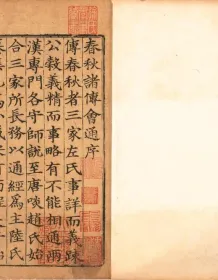 春秋諸傳會通序
傳春秋者三家左氏事詳而義疎
公穀義精而事略有不能相通兩
漢專門各守師說至唐啖趙氏始
合三家所長務以通經為主陸氏